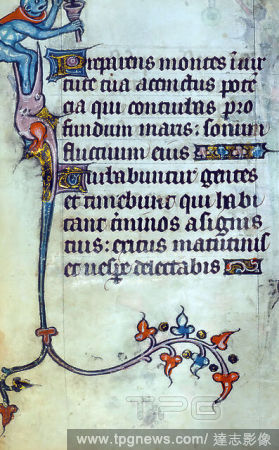 Preparans montes ī uir
tute tua accinctus potē
cia qui conturbas pro
fundum maris: sonum
fluctuum eius
Turbabuntur gentes
et timebunt qui habi
tant t̄minos a signis
tuis: exitus matutini
et uespe delectabis
TPG
www.tpgnews.com/ 達志影像